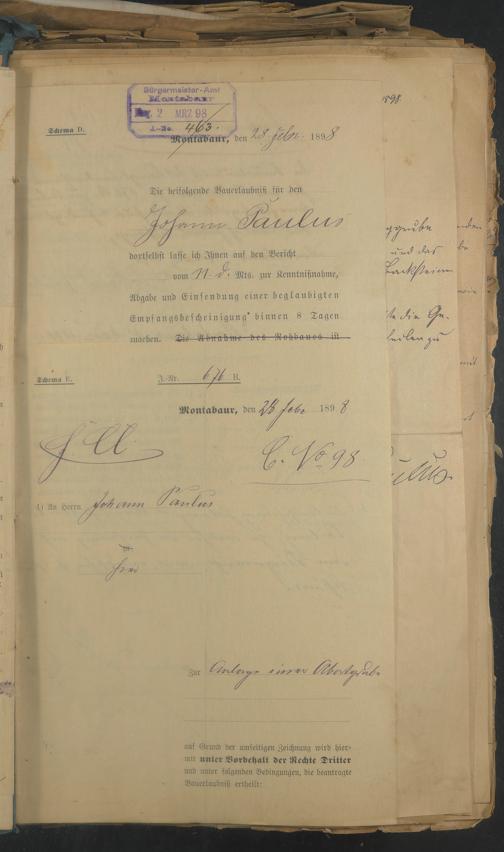 Bürgermeister-Amt
Montabaur
2 MRZ 98
J.-No. 463.
Schema D.
Montabaur, den 28 Febr. 1898
Die beifolgende Bauerlaubniß für den
Johann Paulus
dortselbst lasse ich Ihnen auf den Bericht
vom d. Mts. zur Kenntnißnahme,
Abgabe und Einsendung einer beglaubigten
Empfangsbescheinigung binnen 8 Tagen
machen. Die Abnahme des Rohbaues ist
Schema E.
J.-Nr. 676 B.
Montabaur, den 28 Febr. 1898
C. No 98
1) An Herrn Johann Paulus
in
hier
Zur Anlage einer Abortgrube
auf Grund der umseitigen Zeichnung wird hier-
mit unter Vorbehalt der Rechte Dritter
und unter folgenden Bedingungen, die beantragte
Bauerlaubniß ertheilt:
und das
Backstein
die Ge-